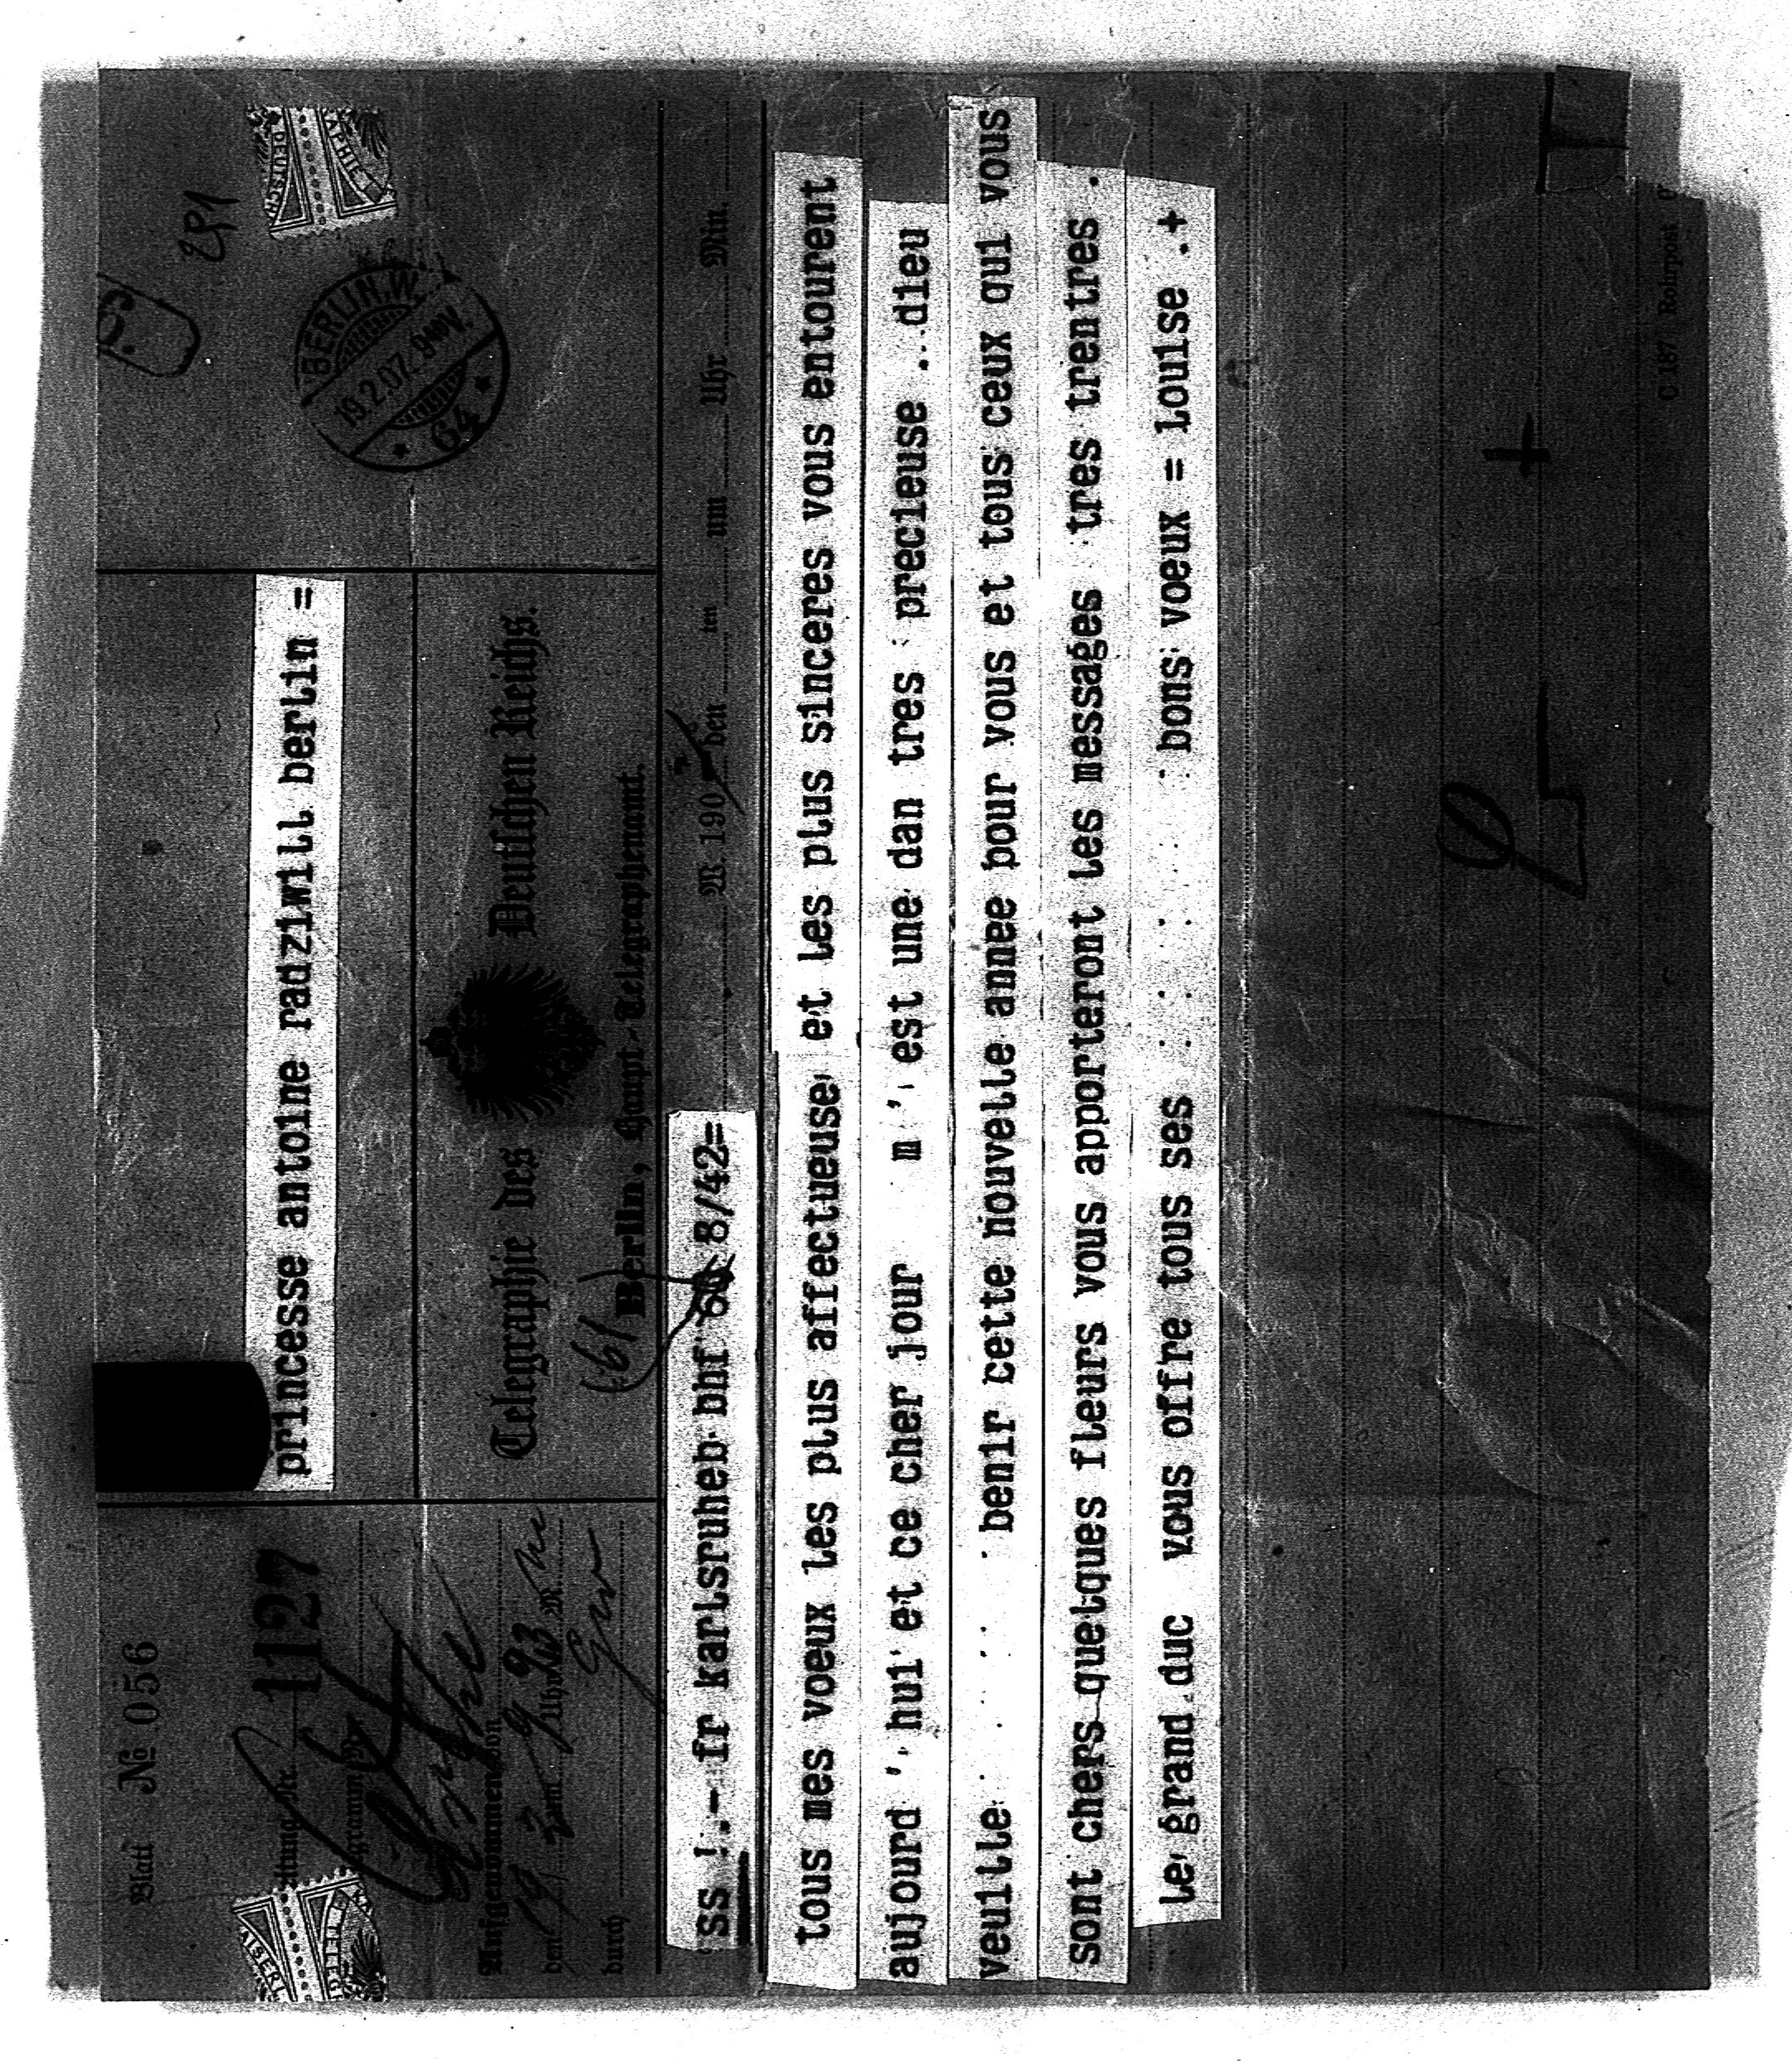 Blatt № 056
1127
princesse antoine radziwill berlin =
BERLIN.W.
19.2.07. 9
64
Telegraphie des Deutschen Reichs.
Berlin, Haupt-Telegraphenamt.
Aufgenommen von
den 19 2 um 9 Uhr 23 M.
durch
ss !.- fr karlsruheb bhf 60 8/42=
M. 190 den in um Uhr Min.
tous mes voeux les plus affectueuse et les plus sinceres vous entourent
aujourd ' hui et ce cher jour m ' est une dan tres precieuse ..dieu
veuille benir cette nouvelle annee pour vous et tous ceux qui vous
sont chers quetques fleurs vous apporteront les messages tres trentres .
le grand duc vous offre tous ses bons voeux = louise .+
C 187 Rohrpost